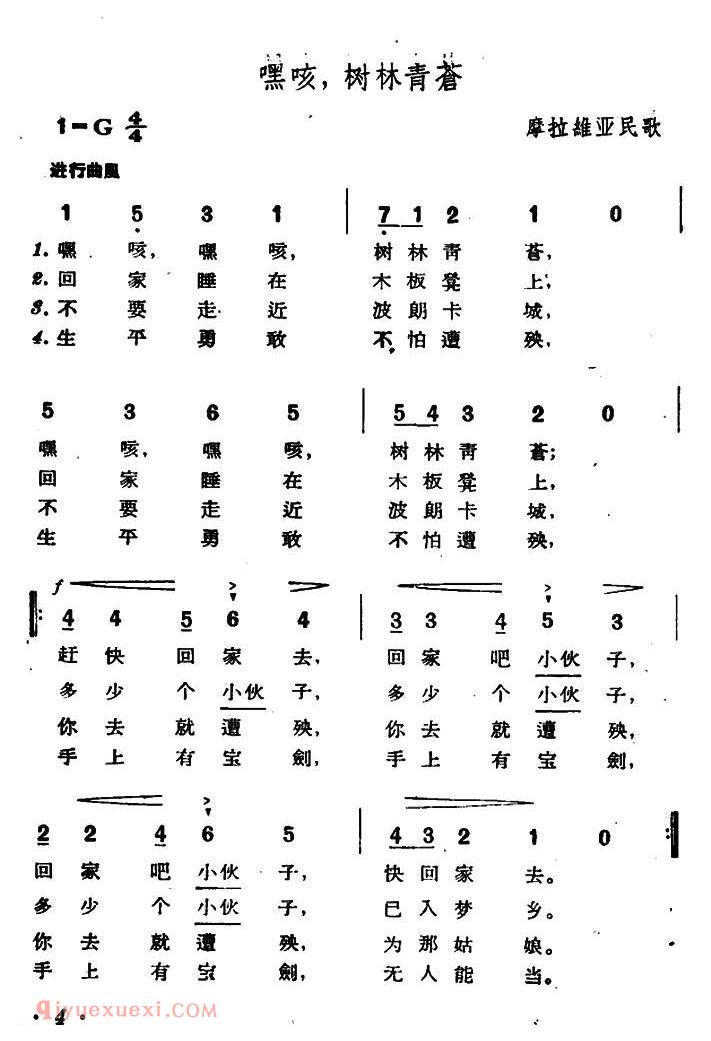 嘿咳，树林青蒼
1=G 4/4 摩拉維亚民歌
进行曲風
1 5 3 1 | 7 1 2 1 0
1. 嘿 咳，嘿 咳， 树 林 青 蒼，
2. 回 家 睡 在 木 板 凳 上，
3. 不 要 走 近 波 朗 卡 城，
4. 生 平 勇 敢 不 怕 遭 殃，
5 3 6 5 | 5 4 3 2 0
嘿 咳，嘿 咳， 树 林 青 蒼；
回 家 睡 在 木 板 凳 上，
不 要 走 近 波 朗 卡 城，
生 平 勇 敢 不 怕 遭 殃，
f
4 4 5 6 4 | 3 3 4 5 3
赶 快 回 家 去， 回 家 吧 小伙 子，
多 少 个 小伙 子， 多 少 个 小伙 子，
你 去 就 遭 殃， 你 去 就 遭 殃，
手 上 有 宝 劍， 手 上 有 宝 劍，
2 2 4 6 5 | 4 3 2 1 0
回 家 吧 小伙 子， 快 回 家 去。
多 少 个 小伙 子， 已 入 梦 乡。
你 去 就 遭 殃， 为 那 姑 娘。
手 上 有 宝 劍， 无 人 能 当。
qiyuexuexi.com
· 4 ·